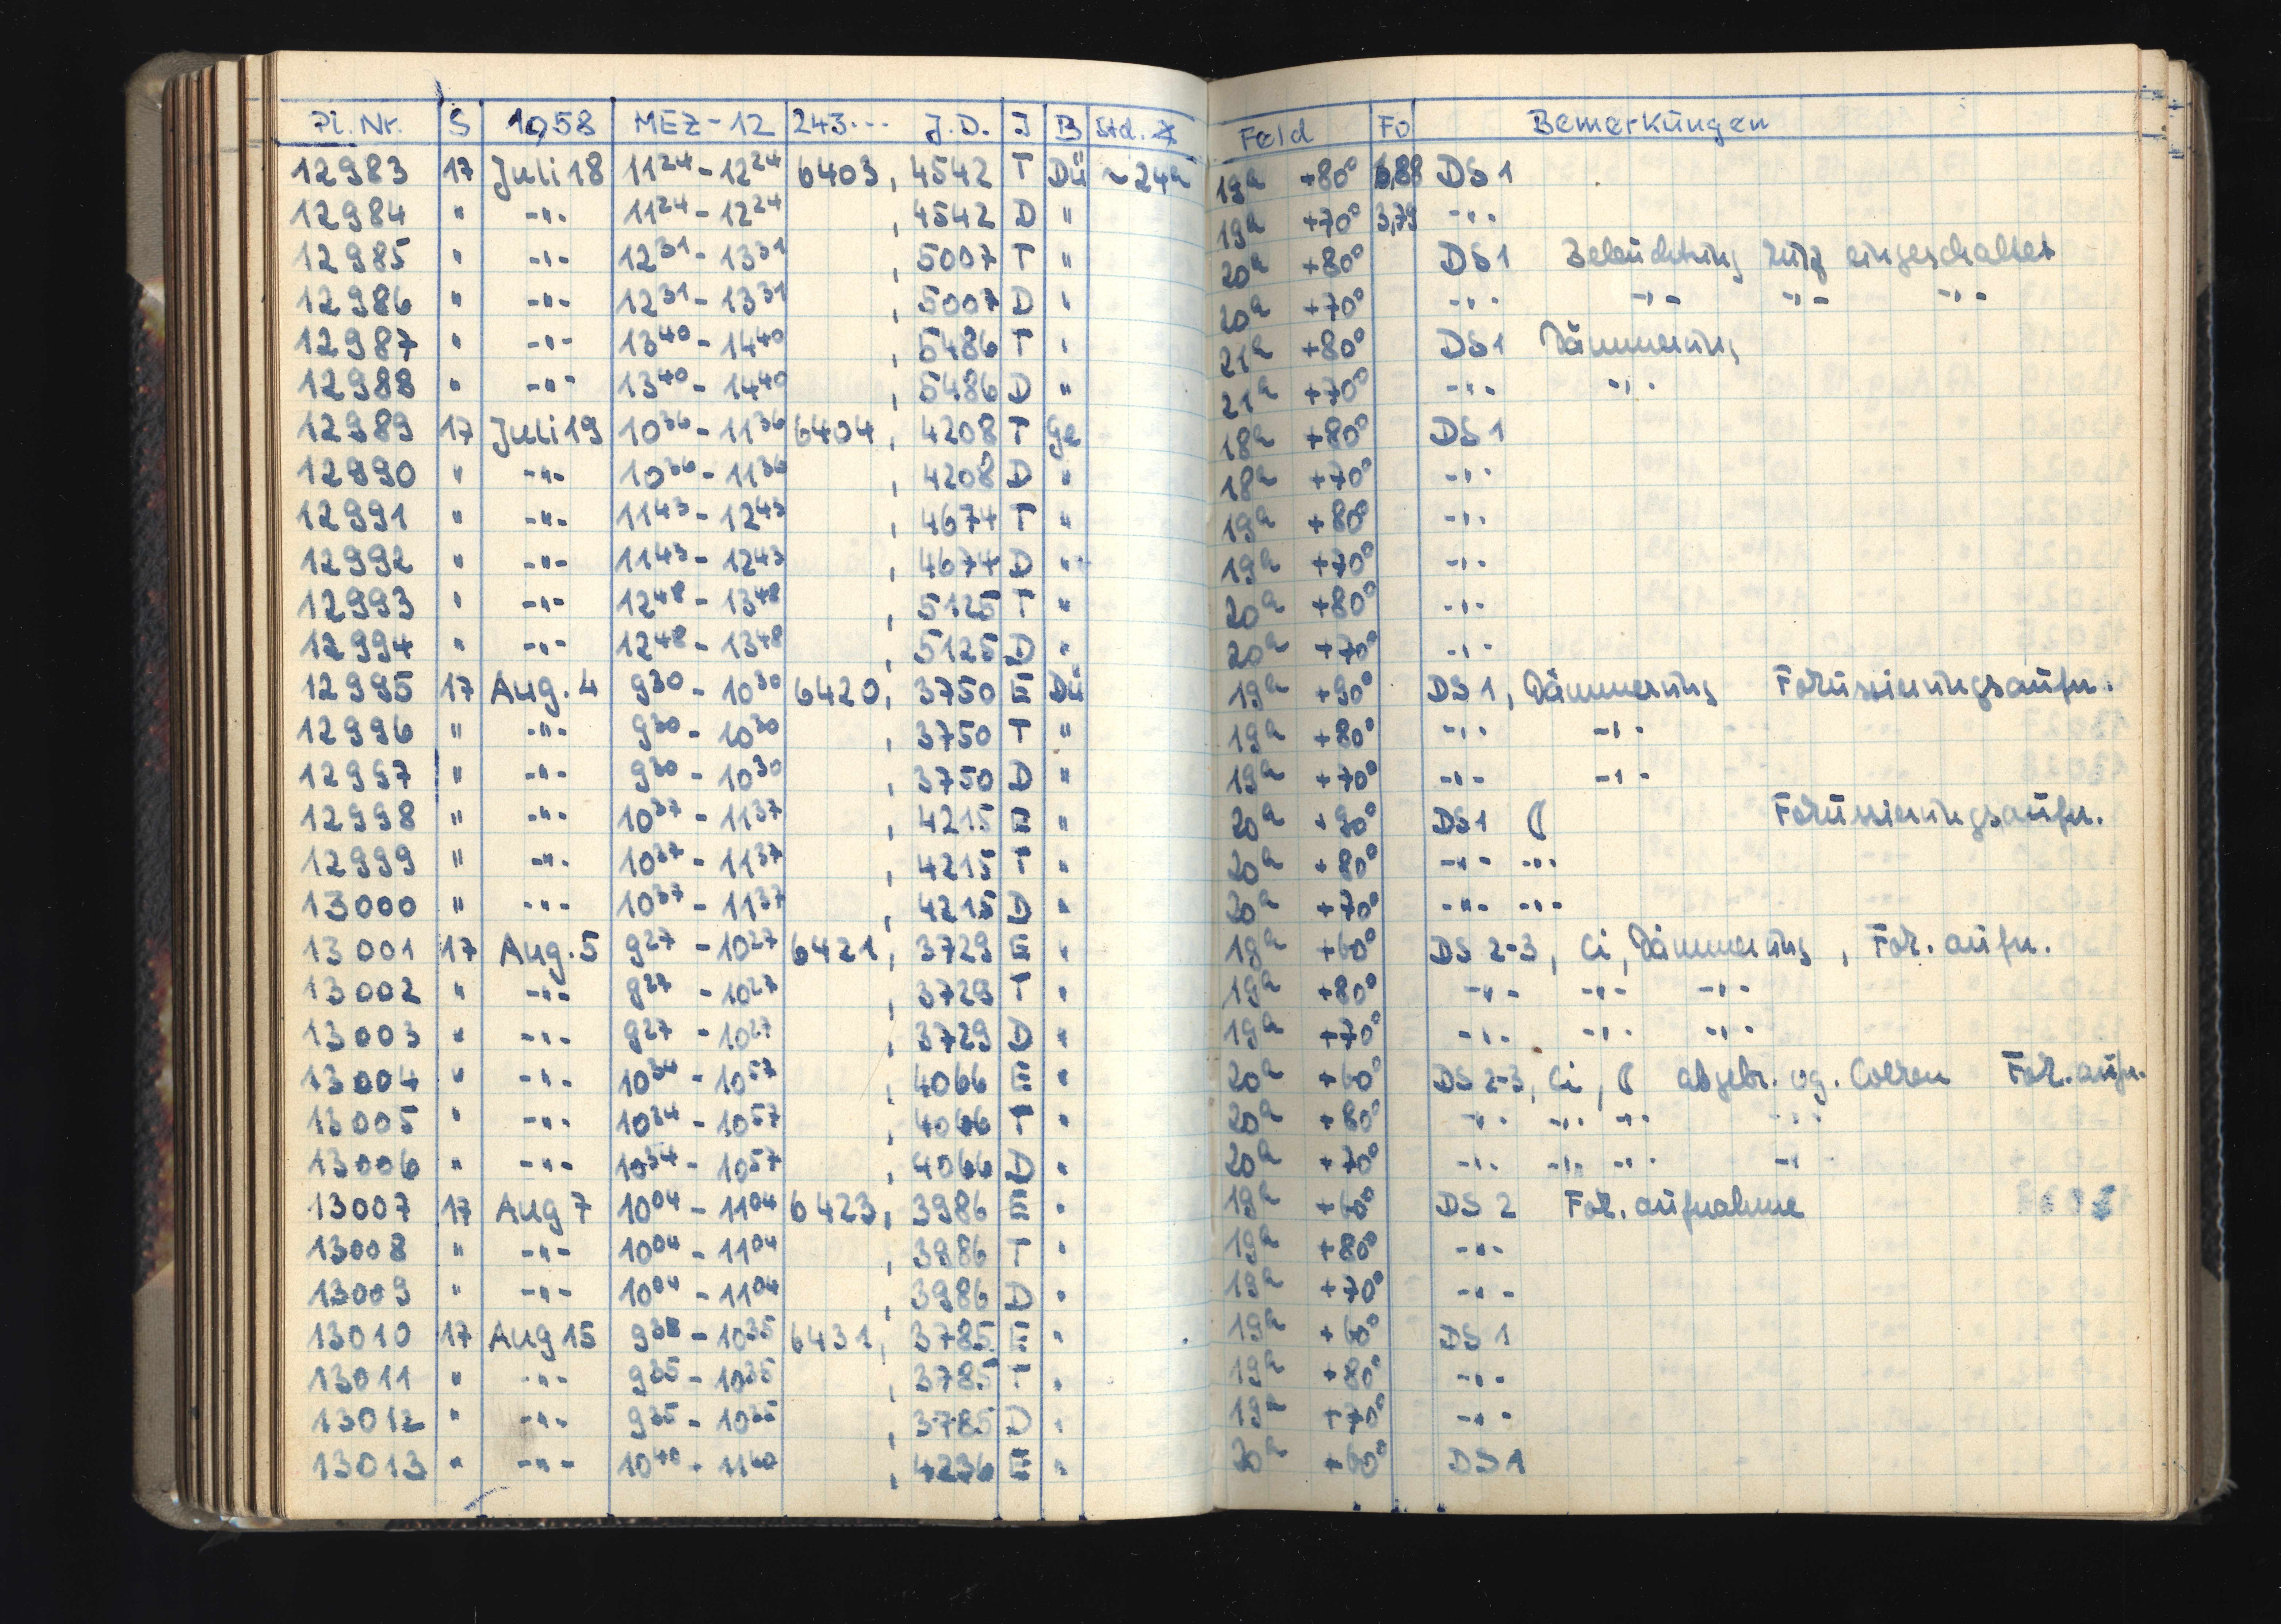 Pl. Nr. S 1958 MEZ-12 243... J.D. I B Std. ∡ Feld Fo Bemerkungen
12983 17 Juli 18 11²⁴ - 12²⁴ 6403, 4542 T Dü ~24ᵃ 19ʰ +80° DS 1
12984 " -"- 11²⁴ - 12²⁴ , 4542 D " 19ʰ +70° 3,79 -"-
12985 " -"- 12³¹ - 13³¹ , 5007 T " 20ʰ +80° DS 1 Beleuchtung kurz eingeschaltet
12986 " -"- 12³¹ - 13³¹ , 5007 D " 20ʰ +70° -"- -"- -"- -"-
12987 " -"- 13⁴⁰ - 14⁴⁰ , 5486 T " 21ʰ +80° DS 1 Dämmerung
12988 " -"- 13⁴⁰ - 14⁴⁰ , 5486 D " 21ʰ +70° -"- -"-
12989 17 Juli 19 10³⁶ - 11³⁶ 6404, 4208 T Ge 18ʰ +80° DS 1
12990 " -"- 10³⁶ - 11³⁶ , 4208 D " 18ʰ +70° -"-
12991 " -"- 11⁴³ - 12⁴³ , 4674 T " 19ʰ +80° -"-
12992 " -"- 11⁴³ - 12⁴³ , 4674 D " 19ʰ +70° -"-
12993 " -"- 12⁴⁸ - 13⁴⁸ , 5125 T " 20ʰ +80° -"-
12994 " -"- 12⁴⁸ - 13⁴⁸ , 5125 D " 20ʰ +70° -"-
12995 17 Aug. 4 9³⁰ - 10³⁰ 6420, 3750 E Dü 19ʰ +90° DS 1, Dämmerung Fokussierungsaufn.
12996 " -"- 9³⁰ - 10³⁰ , 3750 T " 19ʰ +80° -"- -"-
12997 " -"- 9³⁰ - 10³⁰ , 3750 D " 19ʰ +70° -"- -"-
12998 " -"- 10³⁷ - 11³⁷ , 4215 E " 20ʰ +90° DS 1 ☾ Fokussierungsaufn.
12999 " -"- 10³⁷ - 11³⁷ , 4215 T " 20ʰ +80° -"- -"-
13000 " -"- 10³⁷ - 11³⁷ , 4215 D " 20ʰ +70° -"- -"-
13001 17 Aug. 5 9²⁷ - 10²⁷ 6421, 3729 E " 19ʰ +60° DS 2-3, Ci, Dämmerung, Fok. aufn.
13002 " -"- 9²⁷ - 10²⁷ , 3729 T " 19ʰ +80° -"- -"- -"-
13003 " -"- 9²⁷ - 10²⁷ , 3729 D " 19ʰ +70° -"- -"- -"-
13004 " -"- 10³⁴ - 10⁵⁷ , 4066 E " 20ʰ +60° DS 2-3, Ci, ☾ abgebr. wg. Wolken Fok. aufn.
13005 " -"- 10³⁴ - 10⁵⁷ , 4066 T " 20ʰ +80° -"- -"- -"- -"-
13006 " -"- 10³⁴ - 10⁵⁷ , 4066 D " 20ʰ +70° -"- -"- -"- -"-
13007 17 Aug 7 10⁰⁴ - 11⁰⁴ 6423, 3986 E " 19ʰ +60° DS 2 Fok. aufnahme
13008 " -"- 10⁰⁴ - 11⁰⁴ , 3986 T " 19ʰ +80° -"-
13009 " -"- 10⁰⁴ - 11⁰⁴ , 3986 D " 19ʰ +70° -"-
13010 17 Aug 15 9³⁵ - 10³⁵ 6431, 3785 E " 19ʰ +60° DS 1
13011 " -"- 9³⁵ - 10³⁵ , 3785 T " 19ʰ +80° -"-
13012 " -"- 9³⁵ - 10³⁵ , 3785 D " 19ʰ +70° -"-
13013 " -"- 10⁴⁰ - 11⁴⁰ , 4236 E " 20ʰ +60° DS 1